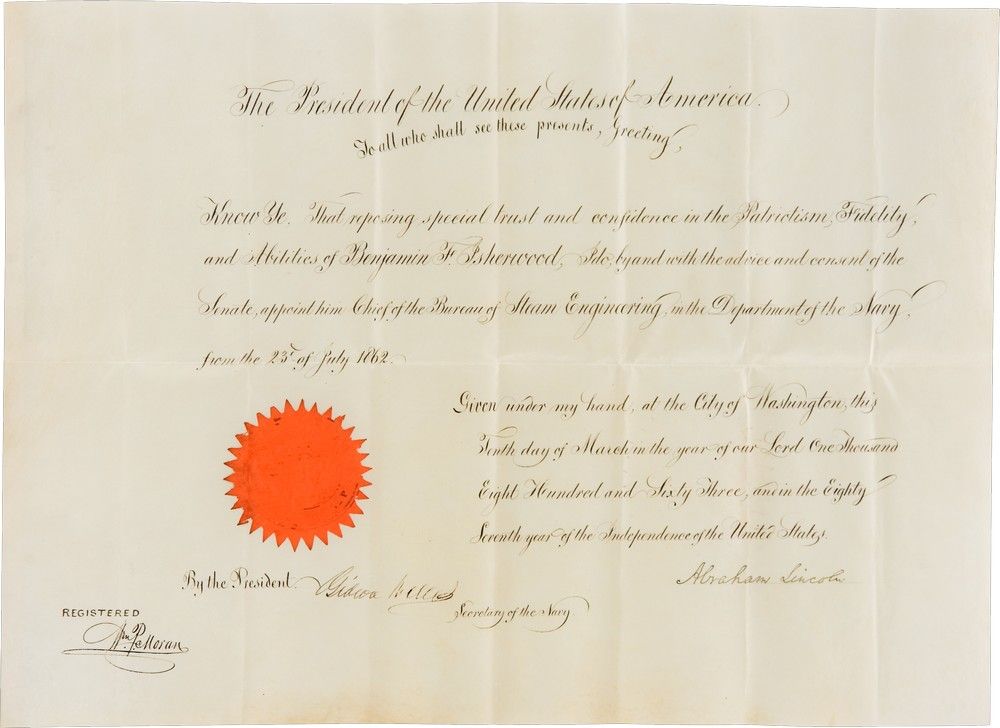 The President of the United States of America.
To all who shall see these presents, Greeting,
Know Ye. That reposing special trust and confidence in the Patriotism, Fidelity,
and Abilities of Benjamin F. Isherwood, I do, by and with the advice and consent of the
Senate, appoint him Chief of the Bureau of Steam Engineering, in the Department of the Navy,
from the 23d of July 1862.
Given under my hand, at the City of Washington, this
Tenth day of March in the year of our Lord One Thousand
Eight Hundred and Sixty Three, and in the Eighty
Seventh year of the Independence of the United States.
Abraham Lincoln
By the President. Gideon Welles
Secretary of the Navy
REGISTERED
Wm. P. Moran